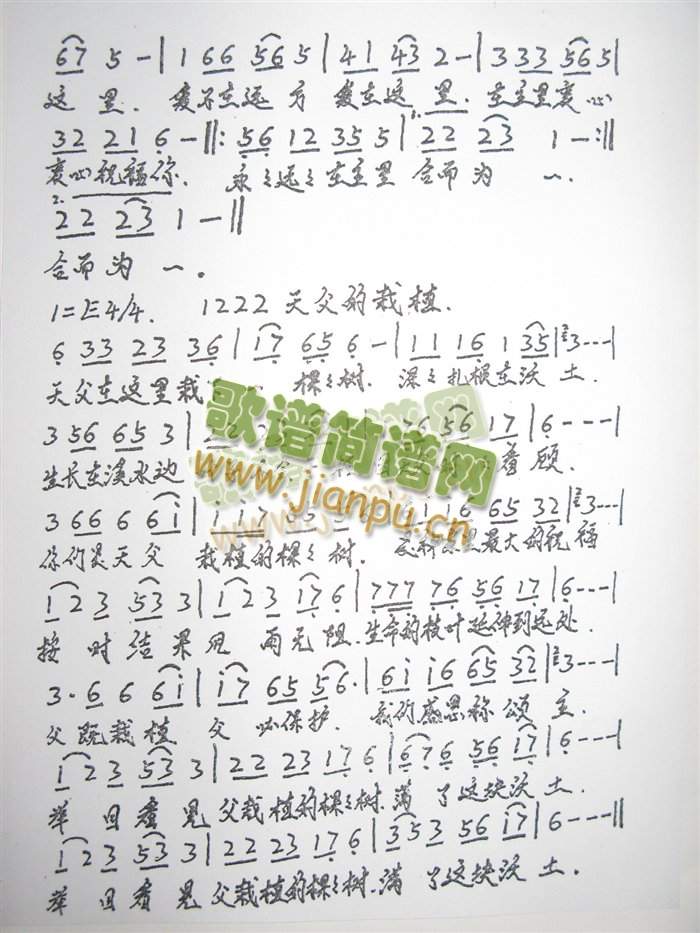 67 5 - | 1 66 56 5 | 41 43 2 - | 3 33 56 5 |
这里. 爱不在远方 爱在这里. 在主里衷心
32 21 6 - ‖: 56 12 35 5 | 22 23 1 - :‖
衷心祝福你. 永々远々在主里 合而为一.
2.
22 23 1 - ‖
合而为一。
1=E 4/4. 1222 天父的栽植.
6 33 23 36 | 17 65 6 - | 11 16 1 35 | 3 - - - |
天父在这里栽 棵々树. 深々扎根在沃土.
3 56 65 3 | 56 17 | 6 - - - |
生长在溪水边 看顾.
3 66 6 6i | 16 65 32 | 3 - - - |
你们是天父 栽植的棵々树. 最大的祝福
1 2 3 53 3 | 1 2 3 17 6 | 777 76 56 17 | 6 - - - |
按时结果 雨无阻. 生命的枝叶延伸到远处.
3· 6 6 6i | i7 65 56· | 6i i6 65 32 | 3 - - - |
父既栽植 父必保护. 我们感恩称颂主.
1 2 3 53 3 | 22 23 17 6 | 676 56 17 | 6 - - - |
举目看见父栽植的棵々树. 满了这块沃土.
1 2 3 53 3 | 22 23 17 6 | 353 56 i7 | 6 - - - ‖
举目看见父栽植的棵々树. 满了这块沃土.
歌谱简谱网
www.jianpu.cn